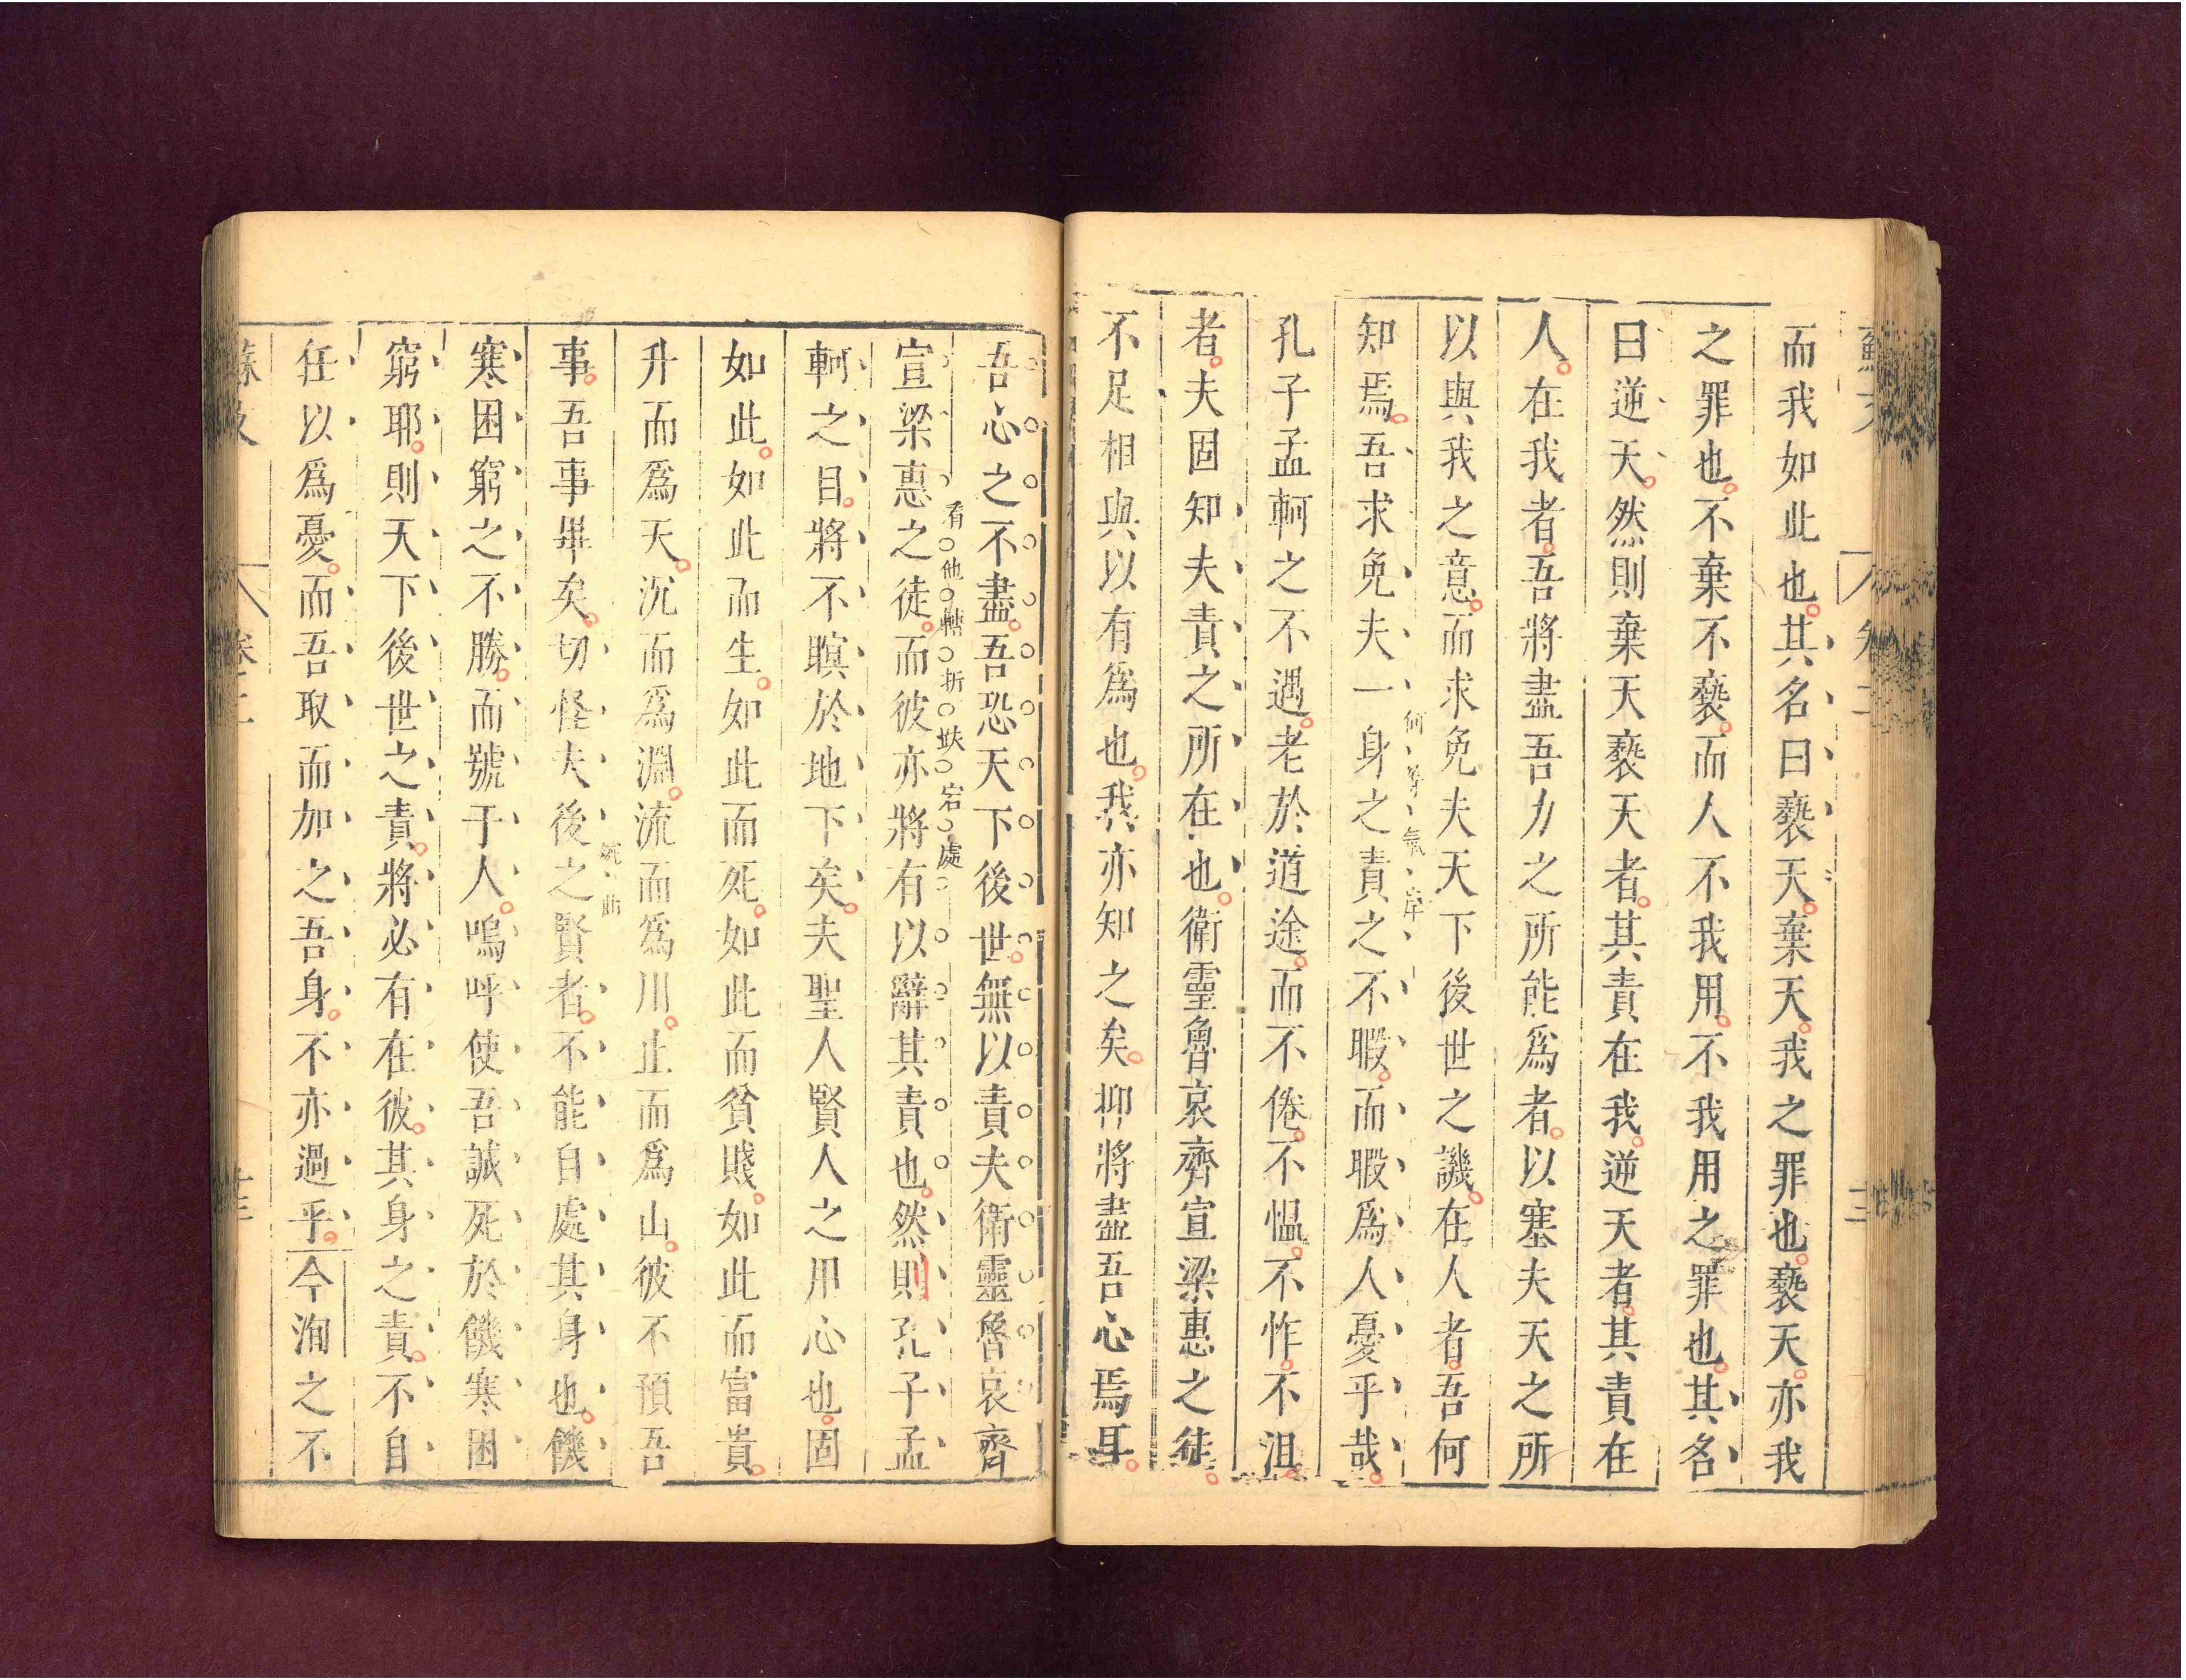 而我如此也其名曰褻天棄天我之罪也褻天亦我
之罪也不棄不褻而人不我用不我用之罪也其名
曰逆天然則棄天褻天者其責在我逆天者其責在
人在我者吾將盡吾力之所能爲者以塞夫天之所
以與我之意而求免夫天下後世之譏在人者吾何
知焉吾求免夫一身之責之不暇而暇爲人憂乎哉
何等氣岸
孔子孟軻之不遇老於道途而不倦不慍不怍不沮
者夫固知夫責之所在也衛靈魯哀齊宣梁惠之徒
不足相與以有爲也我亦知之矣抑將盡吾心焉耳
吾心之不盡吾恐天下後世無以責夫衛靈魯哀齊
宣梁惠之徒而彼亦將有以辭其責也然則孔子孟
看他轉折趺宕處
軻之目將不瞑於地下矣夫聖人賢人之用心也固
如此如此而生如此而死如此而貧賤如此而富貴
升而爲天沉而爲淵流而爲川止而爲山彼不預吾
事吾事畢矣切怪夫後之賢者不能自處其身也饑
寒困窮之不勝而號于人嗚呼使吾誠死於饑寒困
窮耶則天下後世之責將必有在彼其身之責不自
任以爲憂而吾取而加之吾身不亦過乎今洵之不
蘇文 卷二